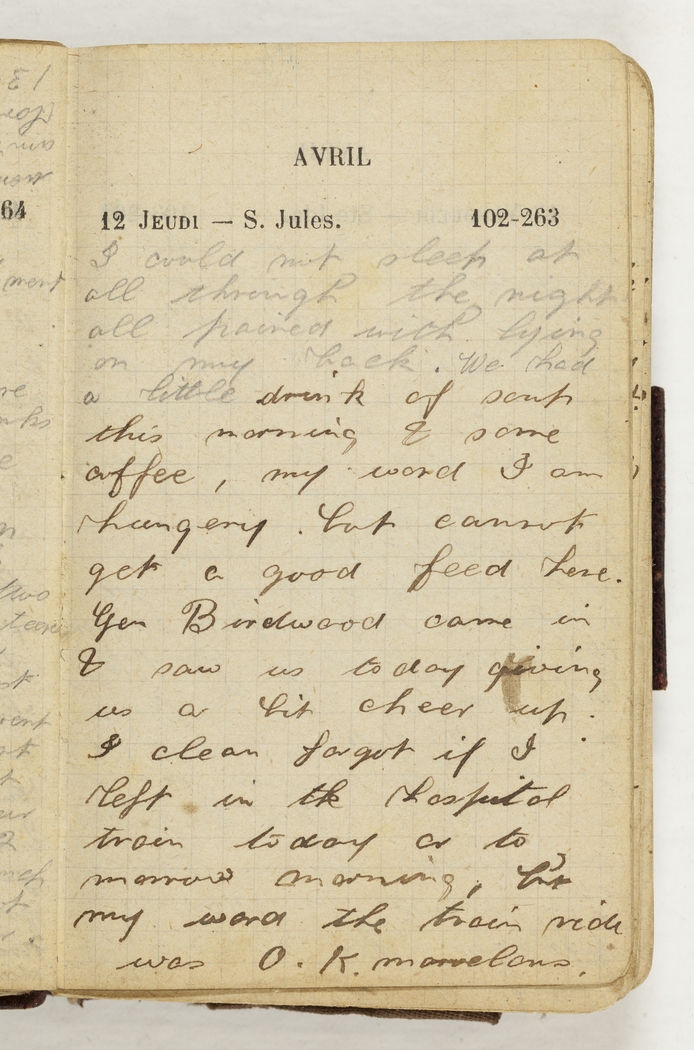 64
AVRIL
12 JEUDI — S. Jules. 102-263
I could not sleep at
all through the night
all pained with lying
on my back. We had
a little drink of soup
this morning & some
coffee, my word I am
hungery. but cannot
get a good feed here.
Gen Birdwood came in
& saw us today giving
us a bit cheer up.
I clean forgot if I
left in the hospital
train today or to
morrow morning, but
my word the train ride
was O.K. marvelous.